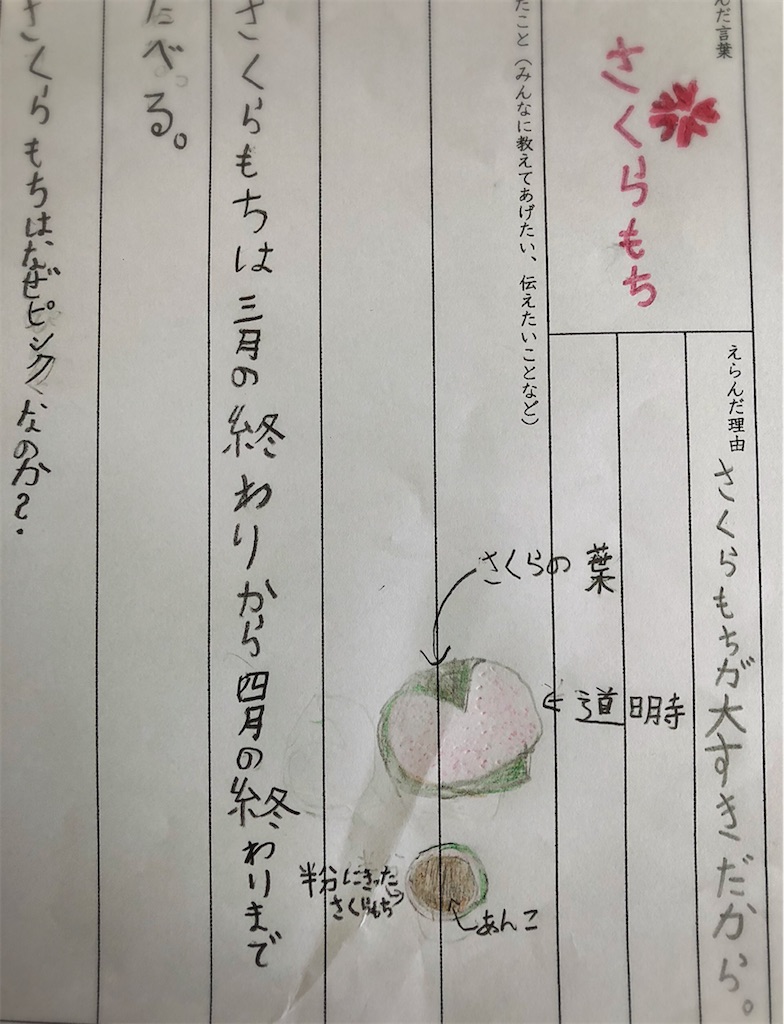 んだ言葉
さくらもち
えらんだ理由
さくらもちが大すきだから。
たこと（みんなに教えてあげたい、伝えたいことなど）
さくらの葉
道明寺
半分にきった
さくらもち
あんこ
さくらもちは三月の終わりから四月の終わりまで
たべる。
さくらもちは、なぜピンクなのか?